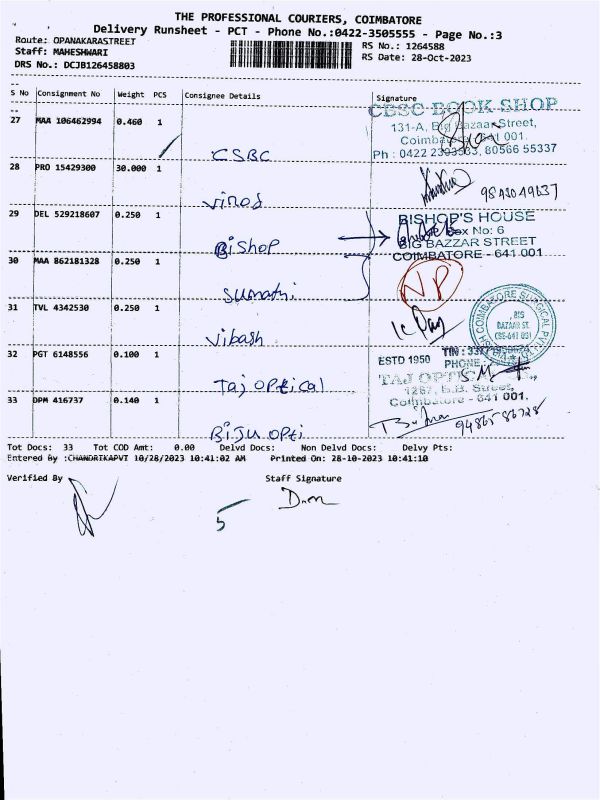 THE PROFESSIONAL COURIERS, COIMBATORE
Delivery Runsheet - PCT - Phone No.:0422-3505555 - Page No.:3
Route: OPANAKARASTREET
RS No.: 1264588
Staff: MAHESHWARI
RS Date: 28-Oct-2023
DRS No.: DCJB126458803
S No Consignment No Weight PCS Consignee Details Signature
CBSC BOOK SHOP
27 MAA 106462994 0.460 1
131-A, Big Bazaar Street,
Coimbatore 641 001.
CSBC
Ph : 0422 2303563, 80566 55337
28 PRO 15429300 30.000 1
Vinod
29 DEL 529218607 0.250 1
BISHOP'S HOUSE
Box No: 6
Bishop
BIG BAZZAR STREET
COIMBATORE - 641 001
30 MAA 862181328 0.250 1
NP
Sumathi
31 TVL 4342530 0.250 1
COIMBATORE SURGICAL
BAZAAR ST.
CBE-641 001
Vibash
32 PGT 6148556 0.100 1
ESTD 1950 TIN :
PHONE:
Taj optical
TAJ OPTICAL
1267, B.B. Street,
33 DPM 416737 0.140 1
Coimbatore - 641 001.
9486586728
Biju opti
Tot Docs: 33 Tot COD Amt: 0.00 Delvd Docs: Non Delvd Docs: Delvy Pts:
Entered By :CHANDRIKAPVT 10/28/2023 10:41:02 AM Printed On: 28-10-2023 10:41:10
Verified By Staff Signature
5